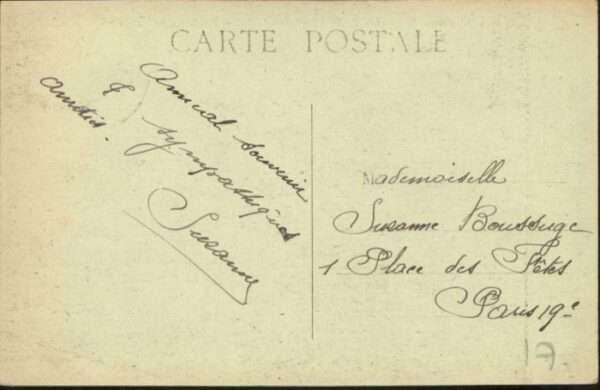 CARTE POSTALE
Amical souvenir
& sympathiques
amitiés.
Suzanne
Mademoiselle
Suzanne Boussuge
1 Place des Fêtes
Paris 19e
17.